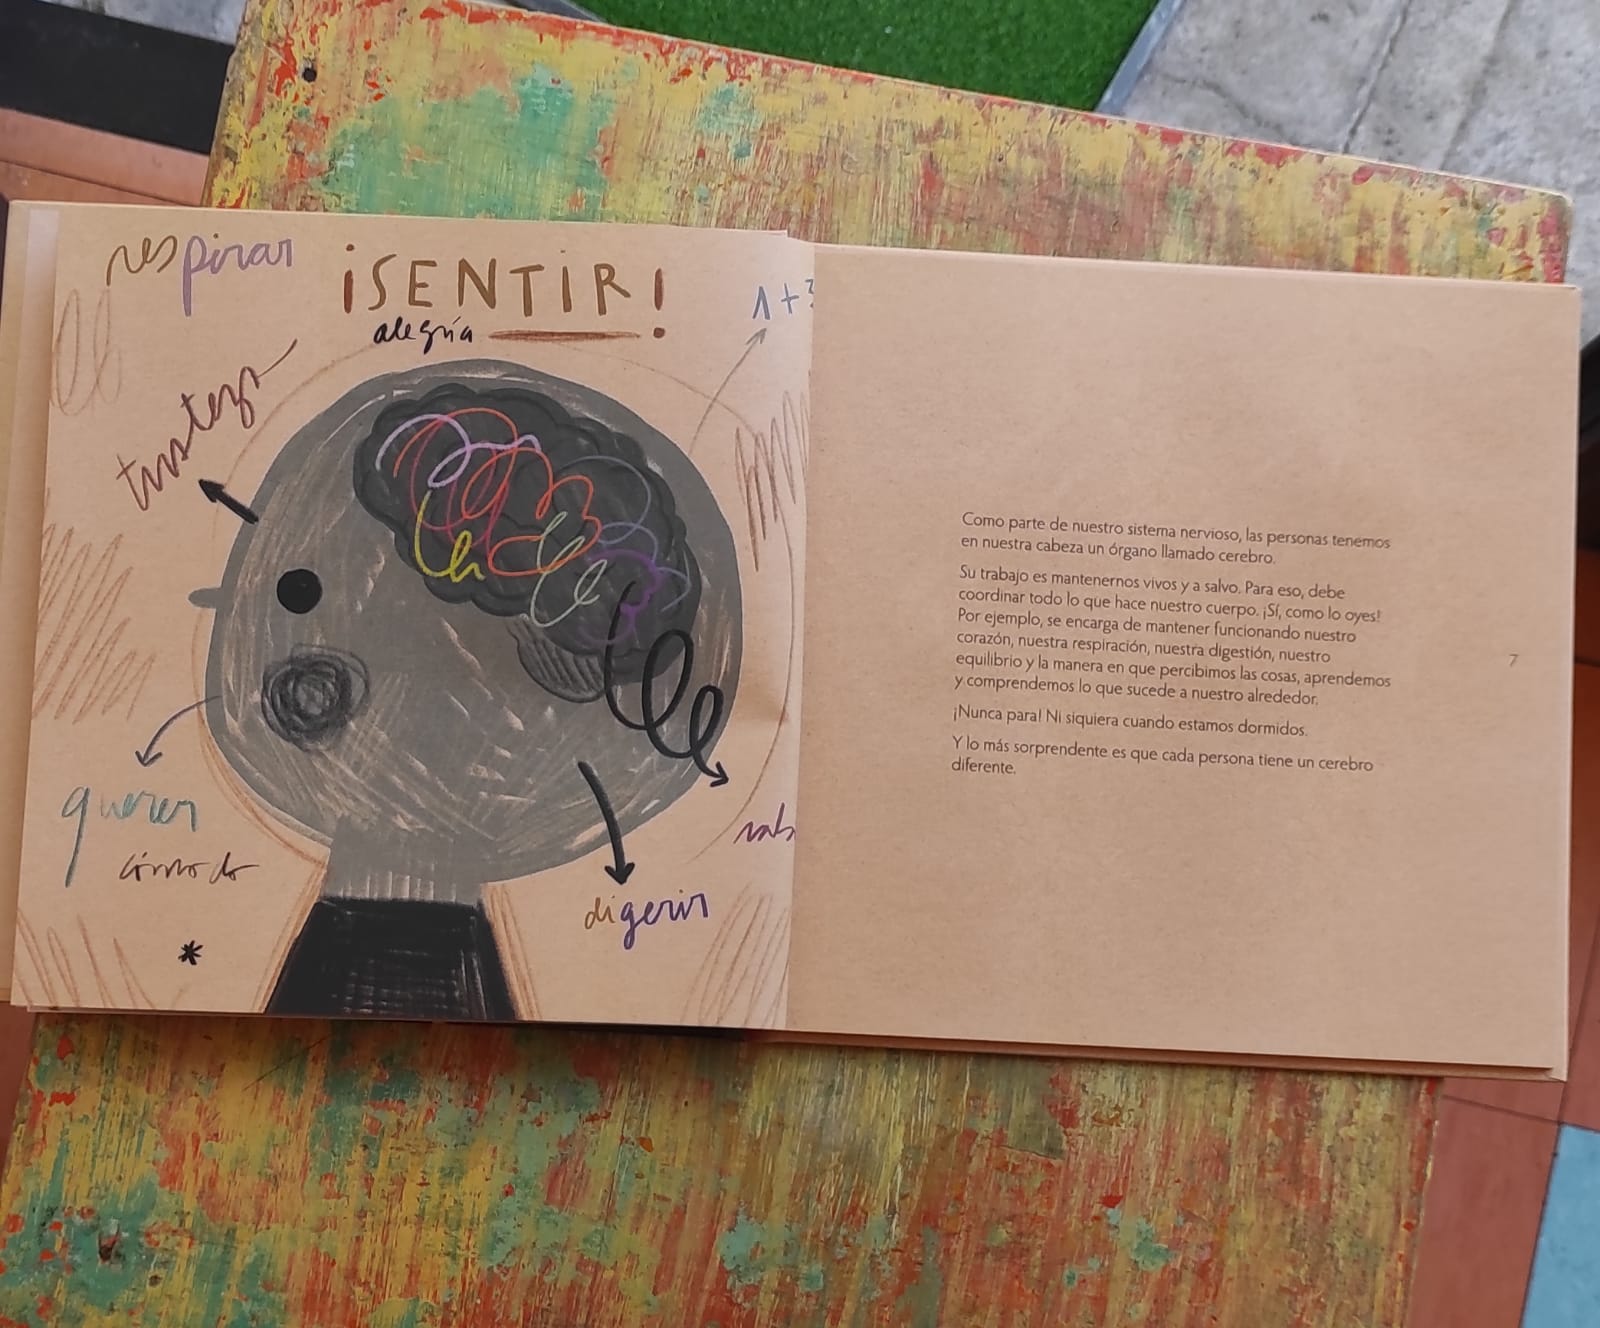 respirar
¡SENTIR!
alegría
1+3
tristeza
querer
cómodo
digerir
Como parte de nuestro sistema nervioso, las personas tenemos
en nuestra cabeza un órgano llamado cerebro.
Su trabajo es mantenernos vivos y a salvo. Para eso, debe
coordinar todo lo que hace nuestro cuerpo. ¡Sí, como lo oyes!
Por ejemplo, se encarga de mantener funcionando nuestro
corazón, nuestra respiración, nuestra digestión, nuestro
equilibrio y la manera en que percibimos las cosas, aprendemos
y comprendemos lo que sucede a nuestro alrededor.
¡Nunca para! Ni siquiera cuando estamos dormidos.
Y lo más sorprendente es que cada persona tiene un cerebro
diferente.
7